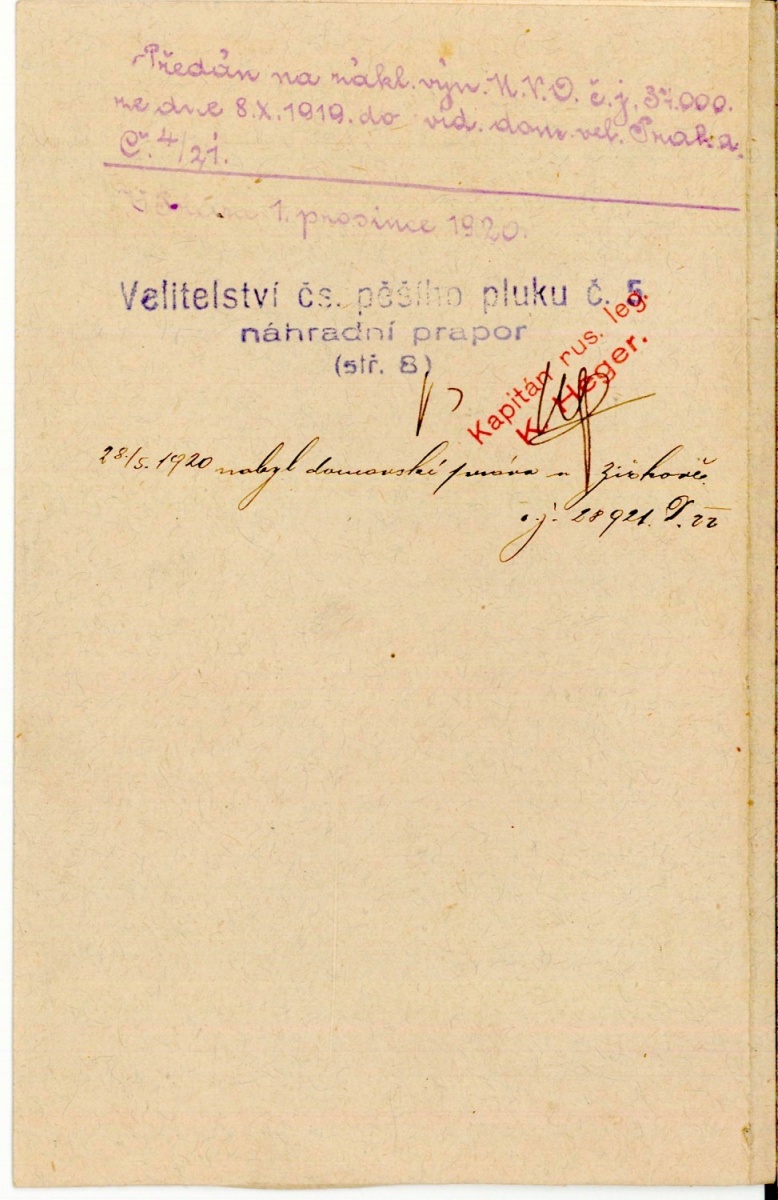 Předán na zákl. výn. M.N.O. č.j. 37.000.
ze dne 8.X.1919. do evid. dom. vel. Praha.
Čř. 4/21.
V 1. prosince 1920.
Velitelství čs. pěšího pluku č. 5
náhradní prapor
(stř. 8)
Kapitán rus. leg.
K. Heger.
28./5. 1920 nabyl domovské právo v Žižkově
č.j. 28921.